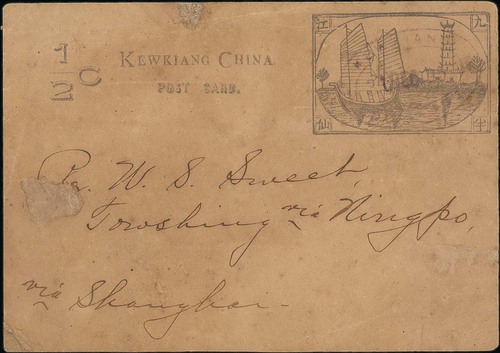 1/2 C
KEWKIANG CHINA
POST CARD.
江 九
仙 半
W. S. Sweet,
via Ningpo,
via Shanghai